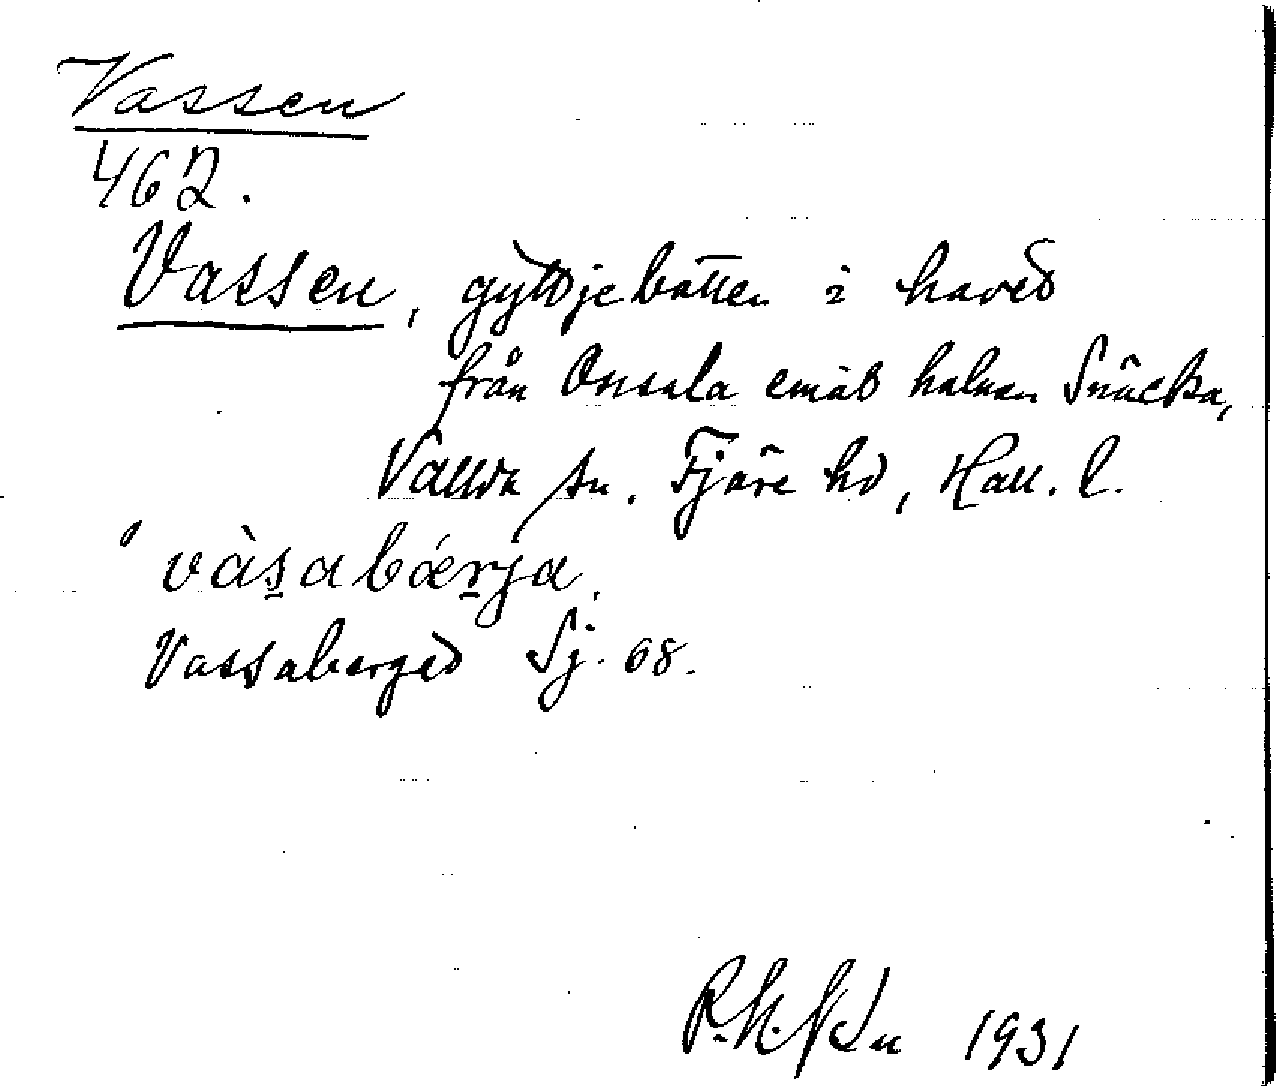 Vassen
462.
Vassen, gyttjebotten i havet
från Onsala emot halvön Snäcka,
Vallda sn. Fjäre hd, Hall. l.
vàsabærja.
Vassaberget Sj. 68.
1931